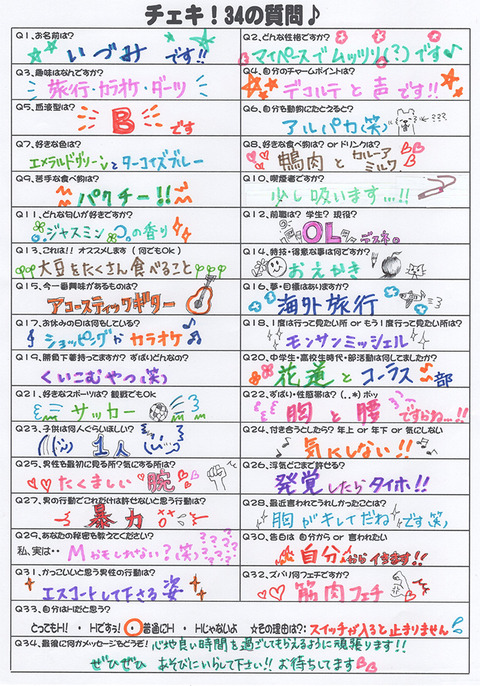 チェキ！34の質問♪
Q1、お名前は？
いづみ です!!
Q2、どんな性格ですか？
マイペースでムッツリ(?)です♪
Q3、趣味はなんですか？
旅行・カラオケ・ダーツ
Q4、自分のチャームポイントは？
デコルテと声です!!
Q5、血液型は？
B です
Q6、自分を動物にたとえると？
アルパカ(笑) ←???
Q7、好きな色は？
エメラルドグリーンとターコイズブルー
Q8、好きな食べ物は？ or ドリンクは？
鴨肉とカルーアミルク
Q9、苦手な食べ物は？
パクチー!!
Q10、喫煙者ですか？
少し吸います...!!
Q11、どんな匂いが好きですか？
ジャスミンの香り
Q12、前職は？ 学生？ 現役？
OL デスネ。
Q13、これは!! オススメします（何でもOk）
大豆をたくさん食べること
Q14、特技・得意な事は何ですか？
おえかき
Q15、今一番興味があるものは？
アコースティックギター
Q16、夢・目標はありますか？
海外旅行
Q17、お休みの日は何をしている？
ショッピングかカラオケ♪
Q18、1度は行って見たい所 or もう1度行って見たい所は？
モンサンミッシェル
Q19、勝負下着持ってますか？ ずばりどんなの？
くいこむやつ(笑)
Q20、中学生・高校生時代・部活動は何してましたか？
花道とコーラス部
Q21、好きなスポーツは？ 観戦でもOk
サッカー
Q22、ずばり・性感帯は？(．．*)ポッ
胸と腰ですかね...!!
Q23、子供は何人ぐらいほしい？
1人
Q24、付き合うとしたら？ 年上 or 年下 or 気にしない
気にしない!!
Q25、男性を最初に見る所？気にする所は？
たくましい腕
Q26、浮気どこまで許せる？
発覚したらタイホ!!
Q27、男の行動でこれだけは許せないと思う行動は？
暴力
Q28、最近言われてうれしかったことは？
胸がキレイだね です(笑)
Q29、あなたの秘密を教えてください？
私、実は・・Mかもしれない？(笑)
Q30、告白は自分から or 言われたい
自分からイきます!!
Q31、かっこいいと思う男性の行動は？
エスコートして下さる姿
Q32、ズバリ何フェチですか？
筋肉フェチ
Q33、自分はHだと思う？
とってもH！ ・Hですぅ！ ・普通にH ・Hじゃないよ ☆その理由は？：スイッチが入ると止まりません
Q34、最後に何かメッセージをどうぞ！ 心地良い時間を過ごしてもらえるように頑張ります!!
ぜひぜひ あそびにいらして下さい!! お待ちしてます